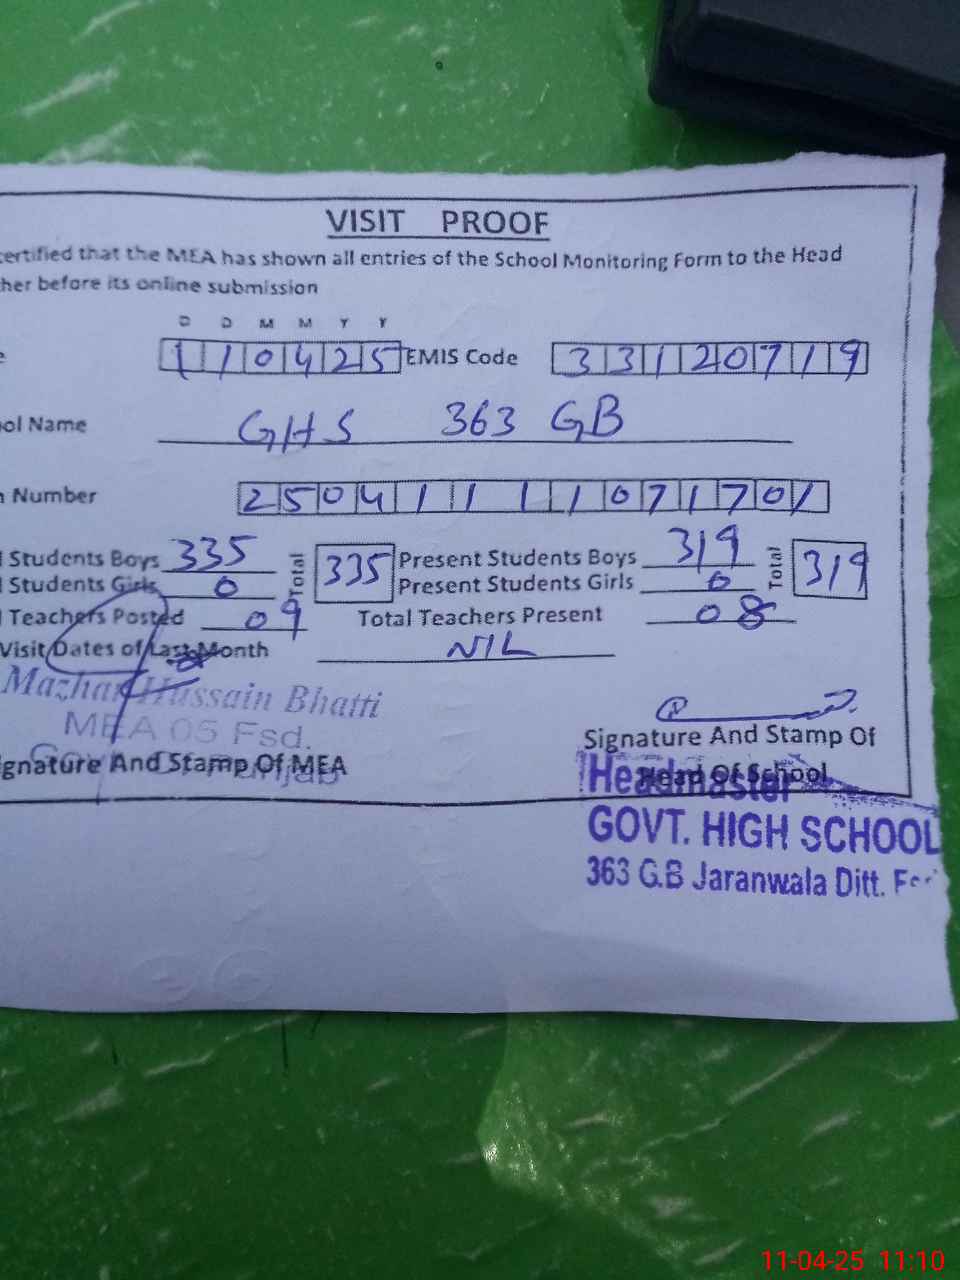 VISIT PROOF
ertified that the MEA has shown all entries of the School Monitoring Form to the Head
her before its online submission
D D M M Y Y
e 110425 EMIS Code 33120719
ol Name GHS 363 GB
n Number 25041111071701
l Students Boys 335 Total 335 Present Students Boys 319 Total 319
l Students Girls 0 Present Students Girls 0
l Teachers Posted 09 Total Teachers Present 08
Visit Dates of Last Month NIL
Mazhar Hussain Bhatti
MEA 05 Fsd.
gnature And Stamp Of MEA
Signature And Stamp Of
Head Of School
Headmaster
GOVT. HIGH SCHOOL
363 G.B Jaranwala Ditt.
11-04-25 11:10